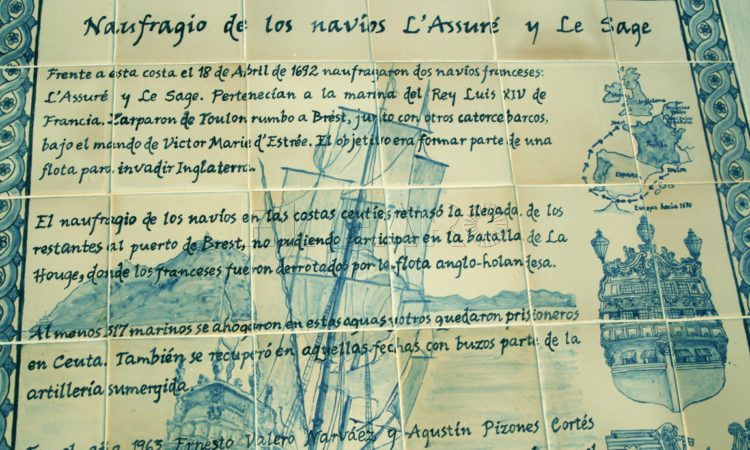 Naufragio de los navíos L'Assuré y Le Sage
Frente a esta costa el 18 de Abril de 1692 naufragaron dos navíos franceses:
L'Assuré y Le Sage. Pertenecían a la marina del Rey Luis XIV de
Francia. Zarparon de Toulon rumbo a Brest, junto con otros catorce barcos,
bajo el mando de Victor Marie d'Estrée. El objetivo era formar parte de una
flota para invadir Inglaterra.
Inglaterra
España
Toulon
Europa hacia 1690
El naufragio de los navíos en las costas ceutíes retrasó la llegada de los
restantes al puerto de Brest, no pudiendo participar en la batalla de La
Houge, donde los franceses fueron derrotados por la flota anglo-holandesa.
Al menos 517 marinos se ahogaron en estas aguas y otros quedaron prisioneros
en Ceuta. También se recuperó en aquellas fechas con buzos parte de la
artillería sumergida.
1963 Ernesto Valero Narváez y Agustín Pizones Cortés